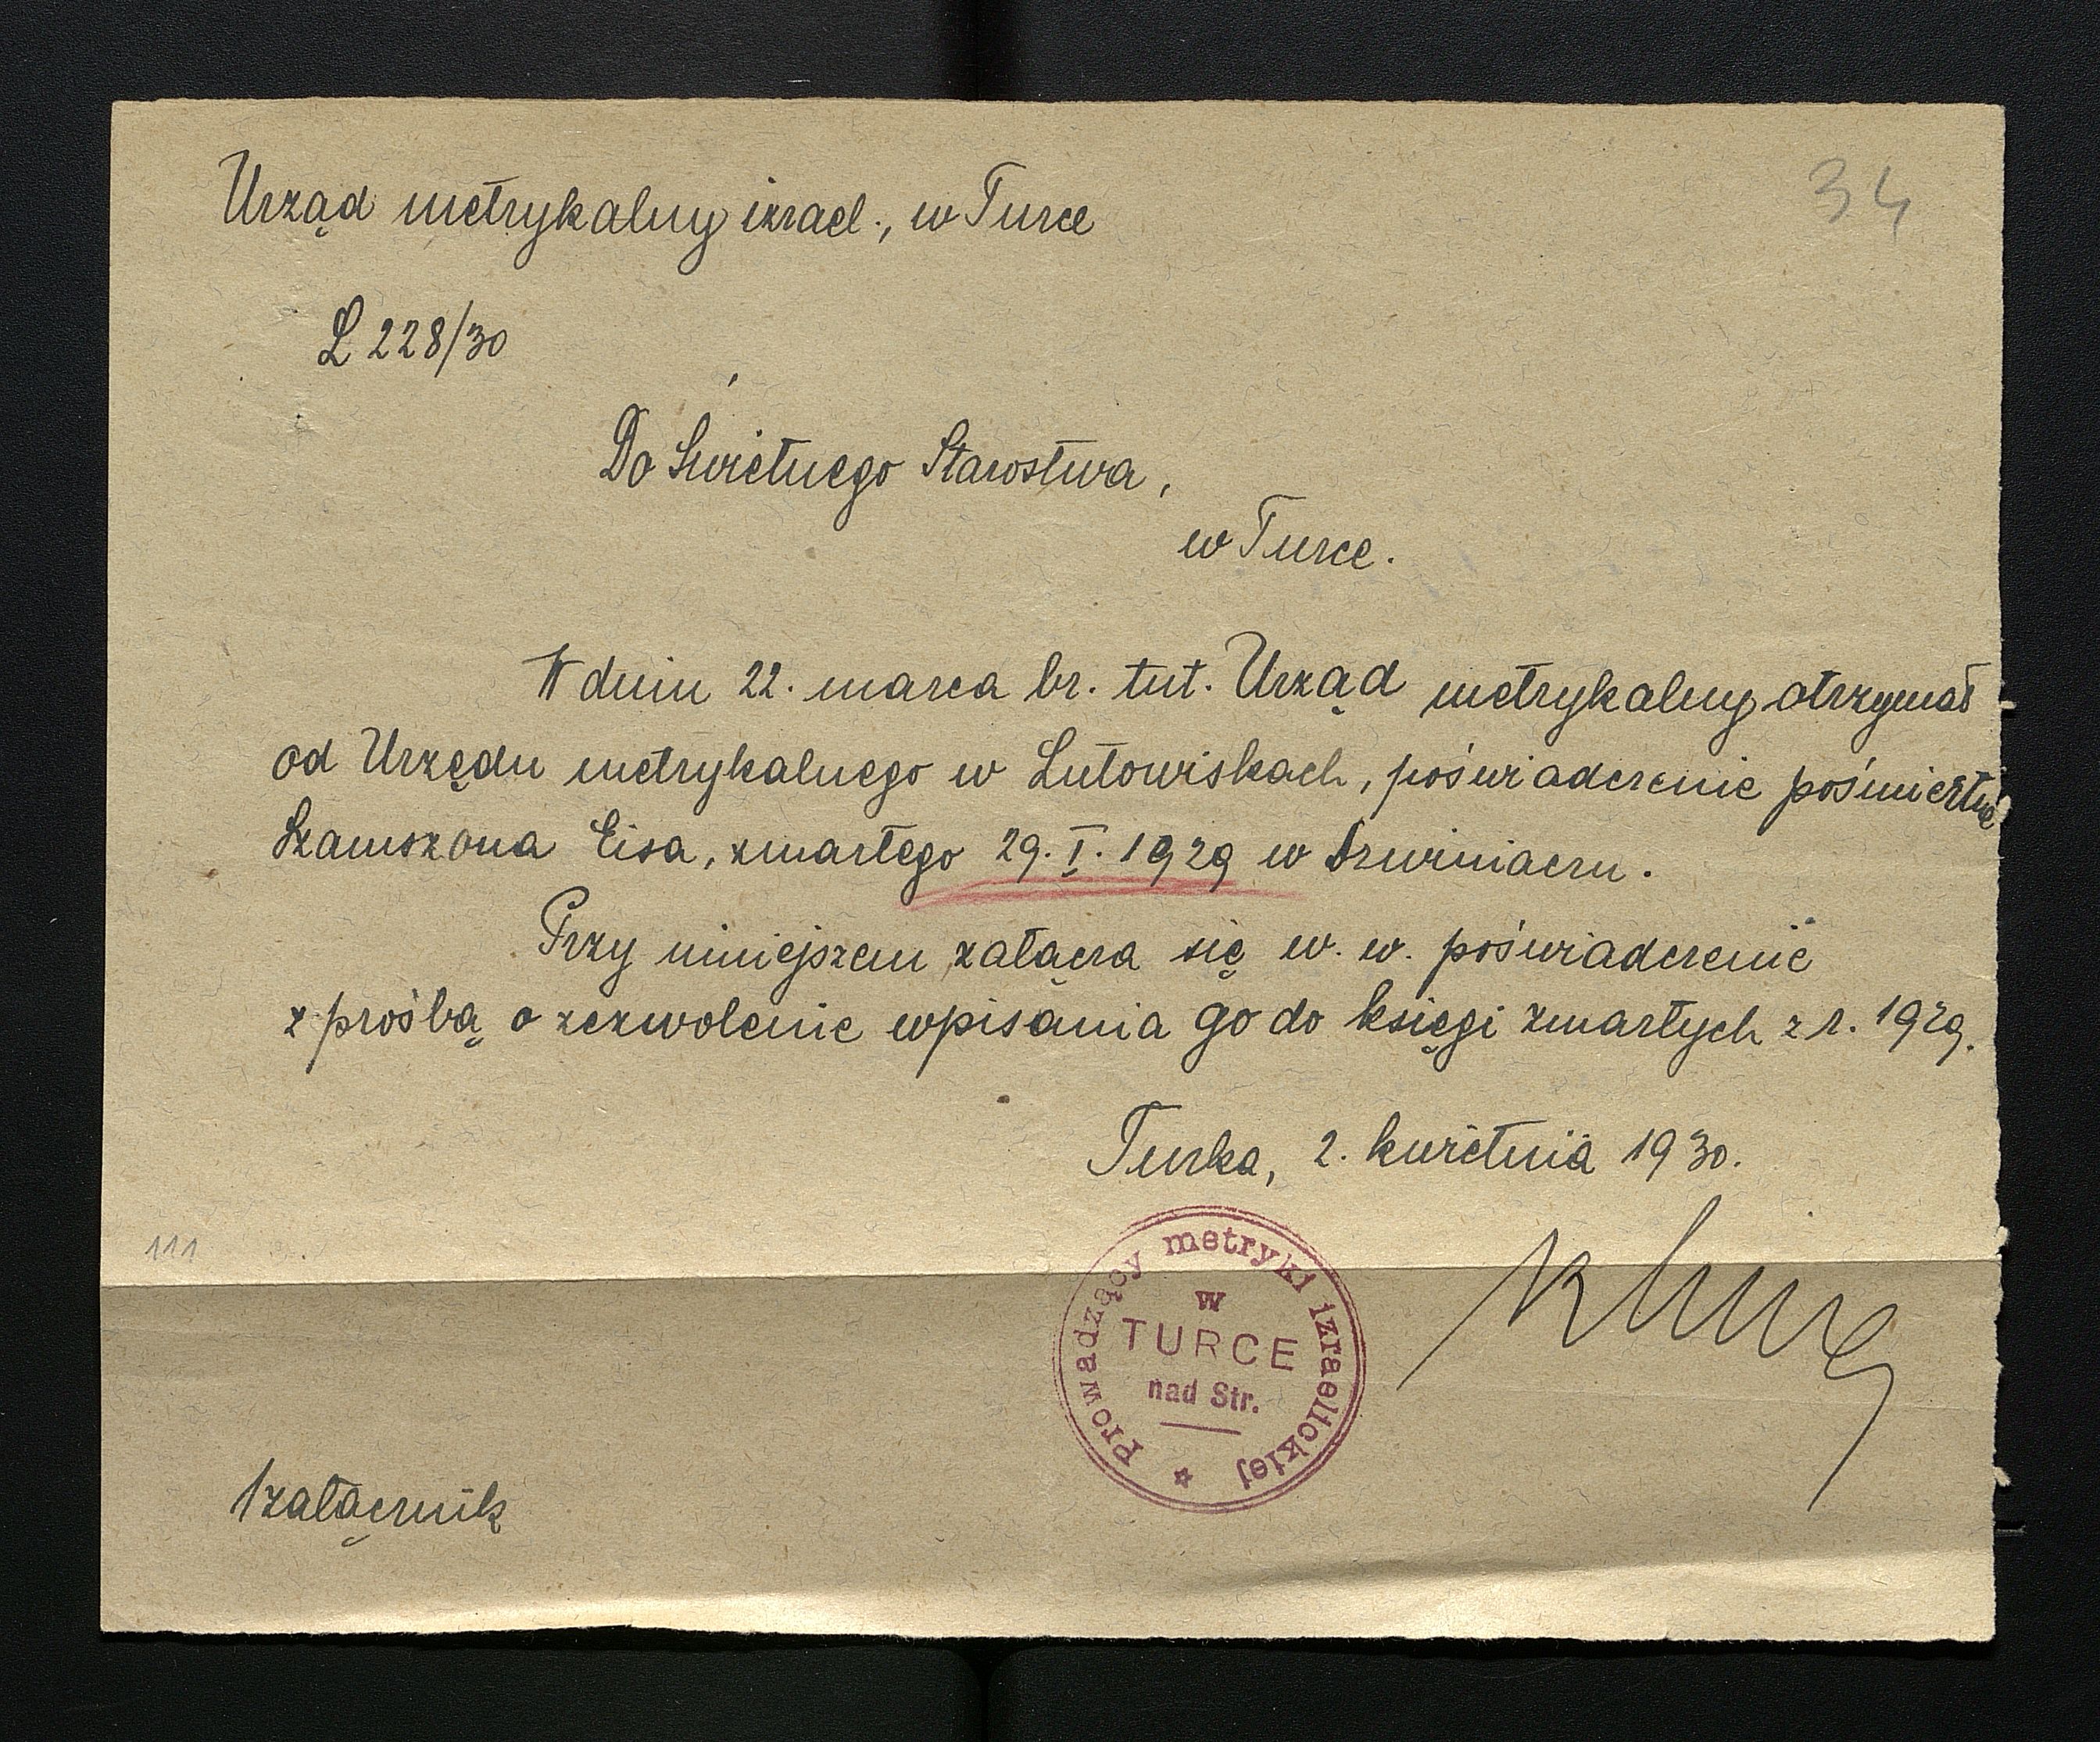 34
Urząd metrykalny izrael., w Turce
L 228/30
Do Świetnego Starostwa,
w Turce.
W dniu 22. marca br. tut. Urząd metrykalny otrzymał
od Urzędu metrykalnego w Lutowiskach, poświadczenie pośmiertne
Szamszona Eisa, zmarłego 29. I. 1929 w
Przy niniejszem załącza się w. w. poświadczenie
z prośbą o zezwolenie wpisania go do księgi zmarłych z r. 1929.
Turka, 2. kwietnia 1930.
111
Prowadzący metryki izraelickiej
w
TURCE
nad Str.
1 załącznik